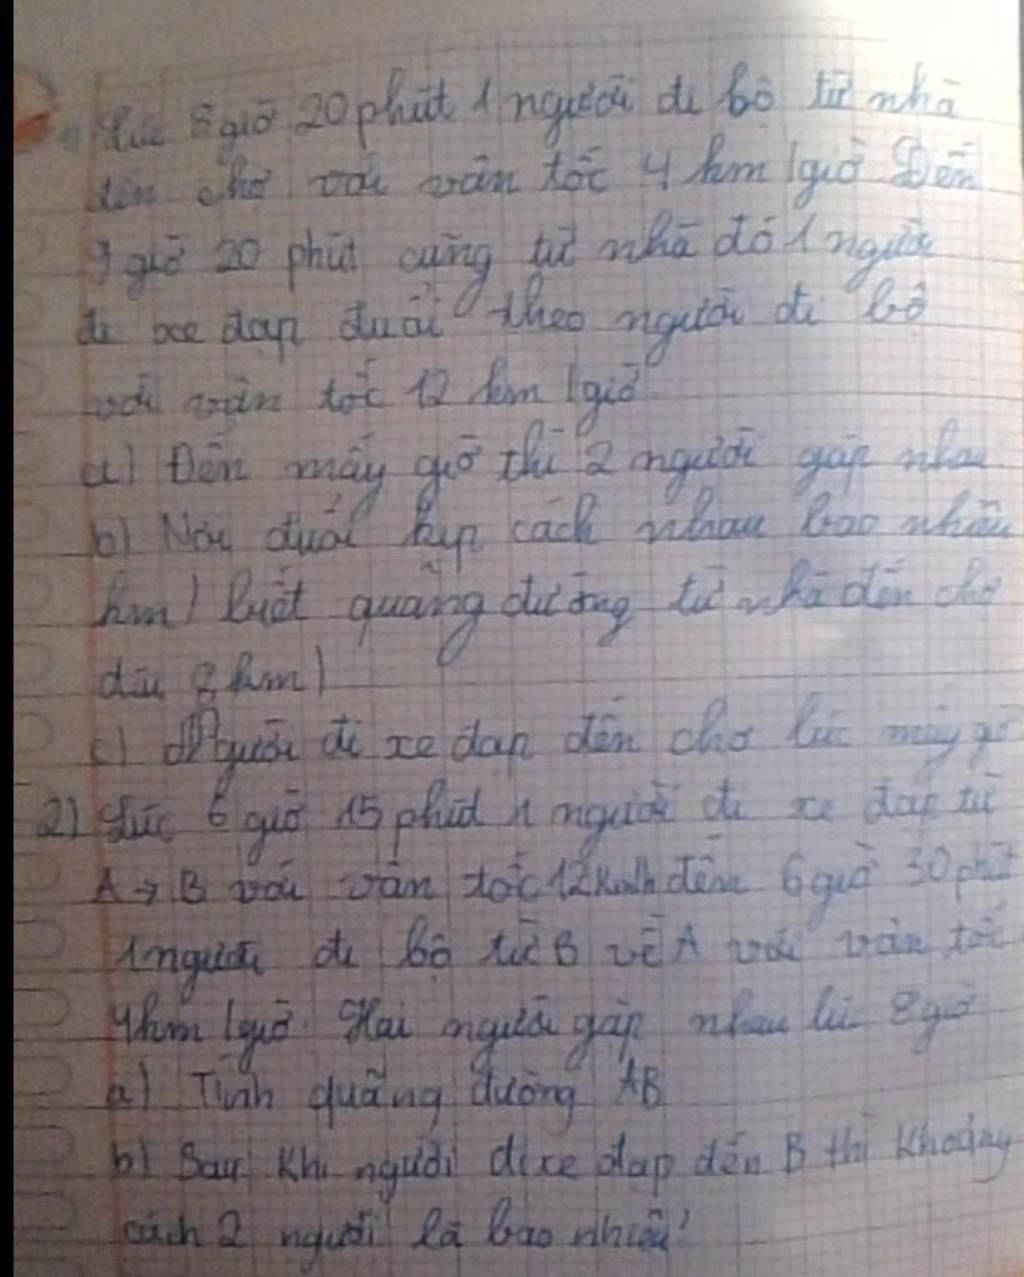 Lúc 8 giờ 20 phút 1 người đi bộ từ nhà
đến chợ với vận tốc 4 km/giờ Đến
9 giờ 20 phút cũng từ nhà đó 1 người
đi xe đạp đuổi theo người đi bộ
với vận tốc 12 km/giờ.
a) Đến mấy giờ thì 2 người gặp nhau.
b) Nơi đuổi kịp cách nhau bao nhiêu
km) biết quãng đường từ nhà đến chợ
dài 8 km)
c) Người đi xe đạp đến chợ lúc mấy giờ
2) Lúc 6 giờ 15 phút 1 người đi xe đạp từ
A → B với vận tốc 12km/h đến 6 giờ 30 phút
1 người đi bộ từ B về A với vận tốc
4km/giờ. Hai người gặp nhau lúc 8 giờ
a) Tính quãng đường AB
b) Sau khi người đi xe đạp đến B thì khoảng
cách 2 người là bao nhiêu?